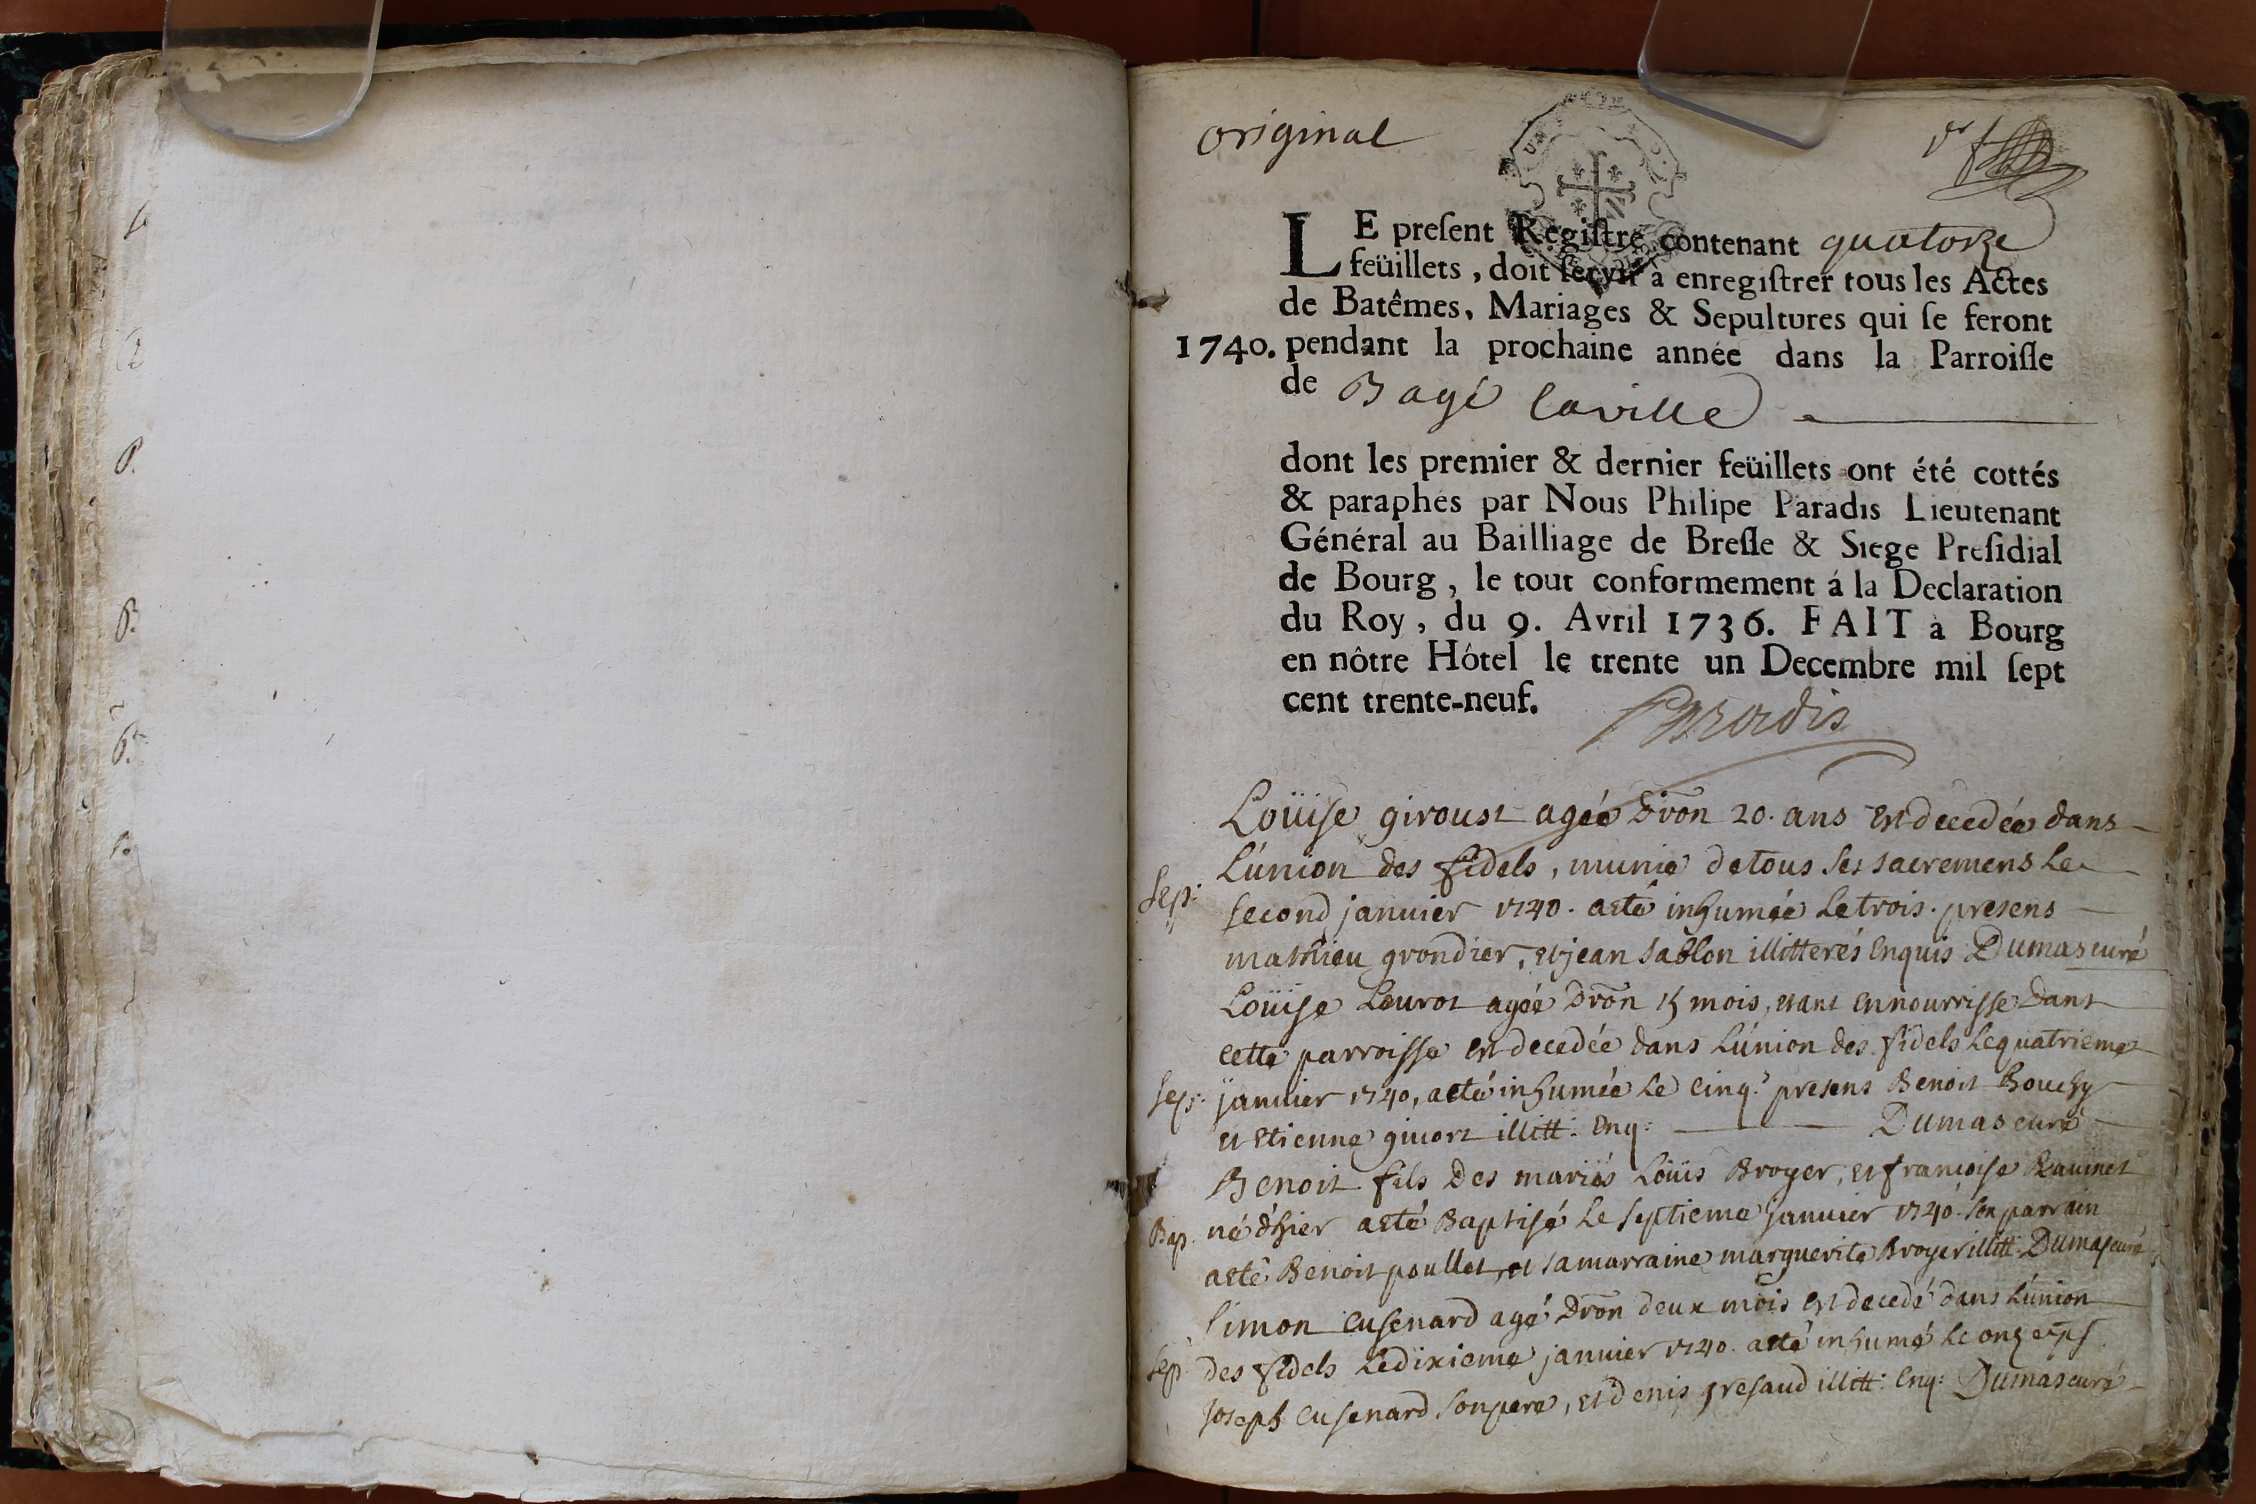 original
LE preſent Regiſtre contenant quatorze
feüillets, doit ſervir à enregiſtrer tous les Actes
de Batêmes, Mariages & Sepultures qui ſe feront
1740. pendant la prochaine année dans la Parroiſſe
de Bagé laville
dont les premier & dernier feüillets ont été cottés
& paraphés par Nous Philipe Paradis Lieutenant
Général au Bailliage de Breſſe & Siege Preſidial
de Bourg, le tout conformement á la Declaration
du Roy, du 9. Avril 1736. FAIT à Bourg
en nôtre Hôtel le trente un Decembre mil ſept
cent trente-neuf.
Paradis
Loüise giroust agée dron 20. ans est decedée dans
L'union des fidels, munie de tous ses sacremens Le
Sep: second janvier 1740. a eté inhumée Le trois. presens
mathieu grondier, et jean sablon illitterés enquis Dumas curé
Loüise Lourot agée dron 15 mois, etant en nourrisse dans
cette parroisse est decedée dans L'union des fidels Le quatrieme
Sep: janvier 1740, a eté inhumée Le cinq. presens Benoit Bouchy
et Etienne givort illitt. enq: Dumas curé
Benoit fils des mariés Loüis Broyer, et francoise Ravinet
Bap. né d'hier a eté Baptisé Le septieme janvier 1740. son parrain
a eté Benoit poullet, et sa marraine marguerite Broyer illitt. Dumas curé
Simon cusenard agé dron deux mois est decedé dans L'union
Sep. des fidels Le dixieme janvier 1740. a eté inhumé Le onze ps
Joseph cusenard son pere, et denis gresaud illitt: enq: Dumas curé